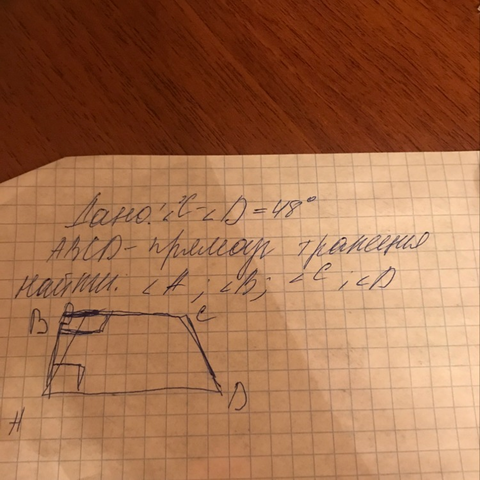 Дано: ∠C-∠D=48°
ABCD-прямоуг трапеция
Найти: ∠A; ∠B; ∠C; ∠D
B C
A D